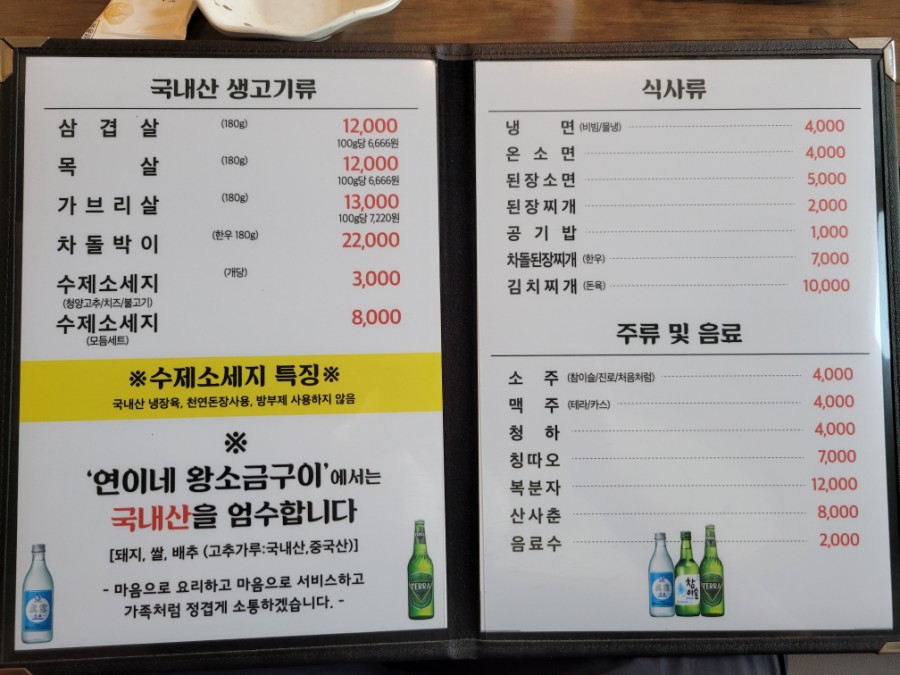 국내산 생고기류
삼겹살 (180g) 12,000
100g당 6,666원
목살 (180g) 12,000
100g당 6,666원
가브리살 (180g) 13,000
100g당 7,220원
차돌박이 (한우 180g) 22,000
수제소세지 (개당) 3,000
(청양고추/치즈/불고기)
수제소세지 8,000
(모듬세트)
※수제소세지 특징※
국내산 냉장육, 천연돈장사용, 방부제 사용하지 않음
※
'연이네 왕소금구이'에서는
국내산을 엄수합니다
[돼지, 쌀, 배추 (고추가루:국내산,중국산)]
- 마음으로 요리하고 마음으로 서비스하고
가족처럼 정겹게 소통하겠습니다. -
TERRA
식사류
냉면 (비빔/물냉) 4,000
온소면 4,000
된장소면 5,000
된장찌개 2,000
공기밥 1,000
차돌된장찌개 (한우) 7,000
김치찌개 (돈육) 10,000
주류 및 음료
소주 (참이슬/진로/처음처럼) 4,000
맥주 (테라/카스) 4,000
청하 4,000
칭따오 7,000
복분자 12,000
산사춘 8,000
음료수 2,000
참이슬
TERRA